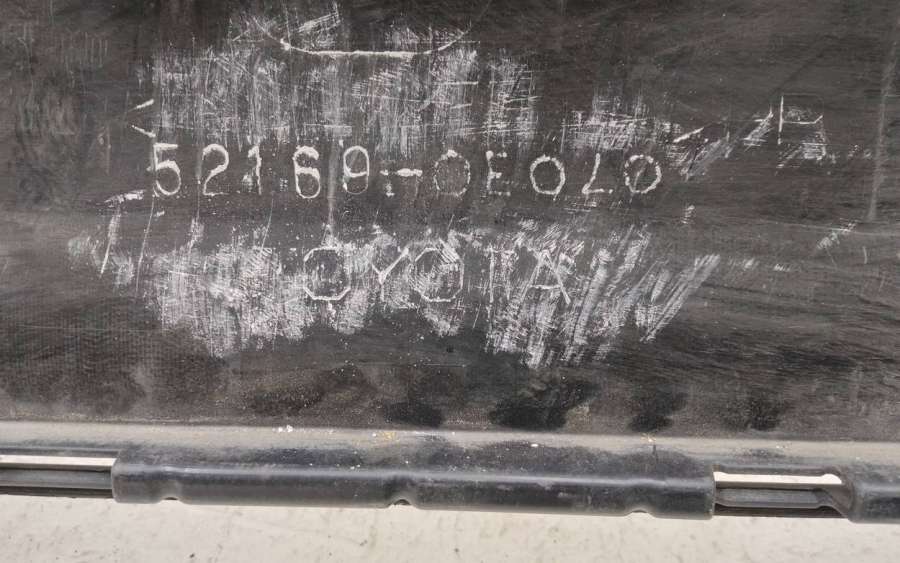 52169-0E070
TOYOTA